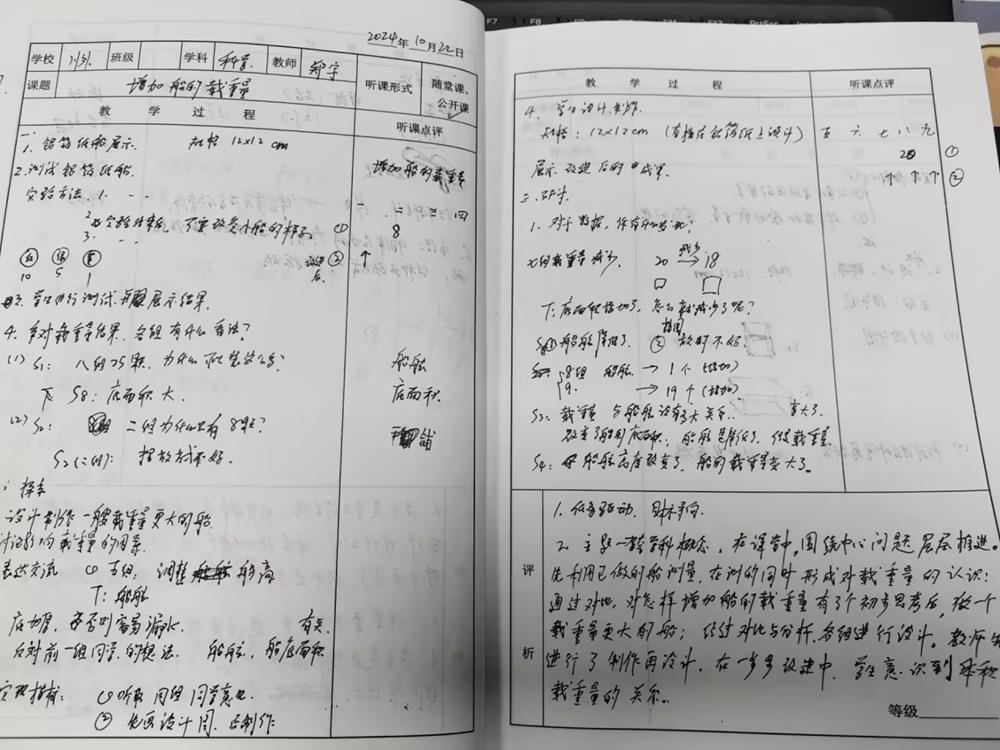 2024年10月22日
学校 班级 学科 科学 教师 郑宇
课题 增加船的载重量 听课形式 随堂课、公开课
教 学 过 程 听课点评
一.
1. 铝箔纸船展示. 规格 12x12 cm
2. 测试铝箔纸船. 增加船的载重量
实验方法 1. - - 一 二 三 四
2. 实验结束后, 不要改变小船的样子 ① 8
3. - - 改进后 ② ↑
10 5 1
3. 学生进行测试, 展示结果.
4. 针对载重结果, 各组有什么看法?
(1) S1: 八组25颗, 为什么 船舷
下 S8: 底面积大. 底面积.
(2) S2: 二组为什么只有8颗?
S2(二组): 摆放方式不好.
二. 探究
设计制作一艘载重量更大的船
讨论影响载重量的因素
表达交流 ① 五组: 调整 船高
T: 船舷
底加厚, 否则容易漏水. 有关
反对前一组同学的想法. 船舷, 船底面积
① 听取同组同学意见
② 先画设计图, 后制作
教 学 过 程 听课点评
4. 学生设计, 制作.
规格: 12x12cm (直接在铝箔纸上设计) 五 六 七 八 九
20 ①
展示改进后的成果. ↑ ↑ ↑ ②
三. 研讨
1. 对于数据, 你有什么发现?
七组载重量减少. 20 减少→ 18
T: 底面积增加了, 怎么就减少了呢?
S: ① 船舷降低了 ② 放的不好
8组 船舷 → 1个 (增加)
9. → 19个 (增加)
S3: 载重量与船舷没有多大关系. 变大了.
改变了船的底面积, 船舷是降低了, 但载重量
S4: 船舷高度改变了, 船的载重量变大了.
评析
1. 任务驱动, 目标导向.
2. 主题—教学科概念, 在课堂中, 围绕中心问题层层推进.
先利用已做的船测量, 在测的同时形成对载重量的认识;
通过对比, 对怎样增加船的载重量有了个初步思考后, 做一个
载重量更大的船; 经过对比与分析, 各组进行设计. 教师
进行了制作再设计, 在一步步改进中, 学生意识到体积
载重量的关系.
等级